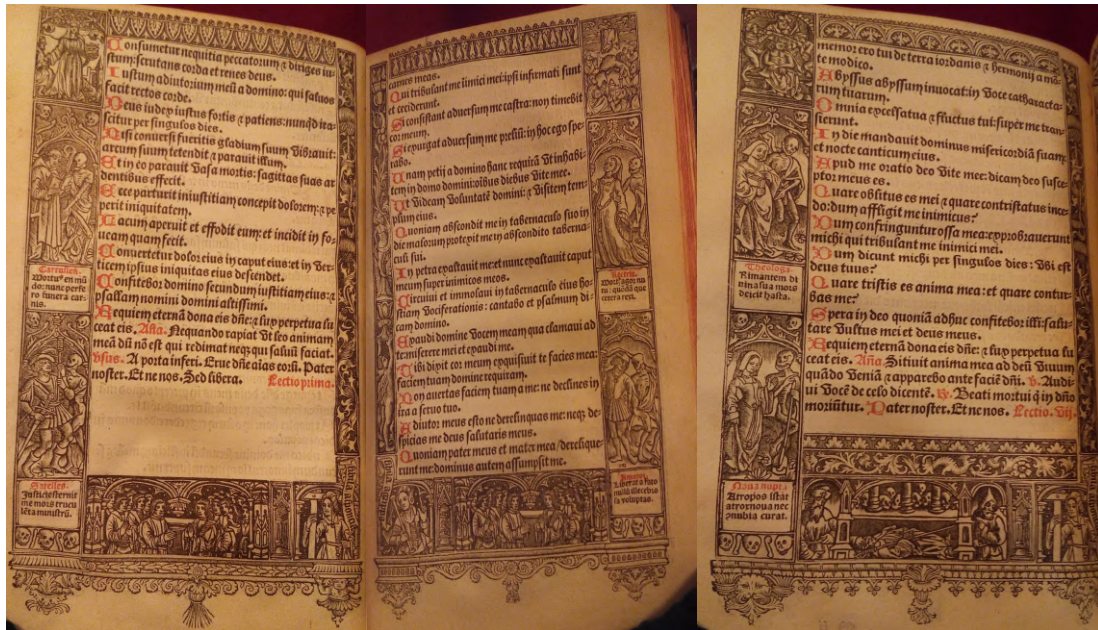 Consumetur nequitia peccatorum ⁊ diriges iu-
stum: scrutans corda et renes deus.
Iustum adiutoriũ meũ a domino: qui saluos
facit rectos corde.
Deus iudex iustus fortis ⁊ patiens: nunqd ira-
scitur per singulos dies.
Nisi conuersi fueritis gladium suum vibrauit:
arcum suum tetendit ⁊ parauit illum.
Et in eo parauit vasa mortis: sagittas suas ar
dentibus effecit.
Ecce parturit iniustitiam concepit dolorem: ⁊ pe
perit iniquitatem.
Lacum aperuit et effodit eum: et incidit in fo-
ueam quam fecit.
Conuertetur dolor eius in caput eius: et in ver-
ticem ipsius iniquitas eius descendet.
Confitebor domino secundum iustitiam eius: ⁊
psallam nomini domini altissimi.
Requiem eternã dona eis dñe: ⁊ lux perpetua lu
ceat eis. Aña. Nequando rapiat vt leo animam
meã dũ nõ est qui redimat neqꝫ qui saluũ faciat.
Vsus. A porta inferi. Erue dñe aĩas eorũ. Pater
noster. Et ne nos. Sed libera. Lectio prima.
nis.
Satelles.
Justicie sternit
me mors truci
lẽta ministrũ.
carnes meas.
Qui tribulant me inimici mei: ipsi infirmati sunt
et ceciderunt.
Si consistant aduersum me castra: non timebit
cor meum.
Si exurgat aduersum me preliũ: in hoc ego spe-
rabo.
Unam petij a domino hanc requirã vt inhabi-
tem in domo domini: oĩbus diebus vite mee.
Ut videam voluntatẽ domini: ⁊ visitem tem-
plum eius.
Quoniam abscondit me in tabernaculo suo in
die malorum: protexit me in abscondito taberna-
culi sui.
In petra exaltauit me: et nunc exaltauit caput
meum super inimicos meos.
Circuiui et immolaui in tabernaculo eius hos-
tiam vociferationis: cantabo et psalmum di-
cam domino.
Exaudi domine vocem meam qua clamaui ad
te: miserere mei et exaudi me.
Tibi dixit cor meum exquisiuit te facies mea:
faciem tuam domine requiram.
Non auertas faciem tuam a me: ne declines in
ira a seruo tuo.
Adiutor meus esto ne derelinquas me: neqꝫ de-
spicias me deus salutaris meus.
Quoniam pater meus et mater mea/derelique-
runt me: dominus autem assumpsit me.
memor ero tui de terra iordanis ⁊ hermonij a mõ-
te modico.
Abyssus abyssum inuocat: in voce catharacta-
rum tuarum.
Omnia excelsa tua ⁊ fluctus tui: super me tran-
sierunt.
In die mandauit dominus misericordiã suam:
et nocte canticum eius.
Apud me oratio deo vite mee: dicam deo susce-
ptor meus es.
Quare oblitus es mei ⁊ quare contristatus ince-
do: dum affligit me inimicus?
Dum confringuntur ossa mea: exprobrauerunt
michi qui tribulant me inimici mei.
Dum dicunt michi per singulos dies: vbi est
deus tuus?
Quare tristis es anima mea: et quare contur-
bas me?
Spera in deo quoniã adhuc confitebor illi: salu-
tare vultus mei et deus meus.
Requiem eternam dona eis dñe: ⁊ lux perpetua lu
ceat eis. Aña. Sitiuit anima mea ad deũ viuum
quãdo veniã ⁊ apparebo ante faciẽ dñi. ℣. Audi-
ui vocẽ de celo dicentẽ. ℟. Beati mortui q̃ in dño
moriũtur. Pater noster. Et ne nos. Lectio. vij.
Theologꝰ.
Rimantem di
uina sua mors
deicit hasta.
Noua nupta
Atropos istat
atrox noua nec
ↄnubia curat.